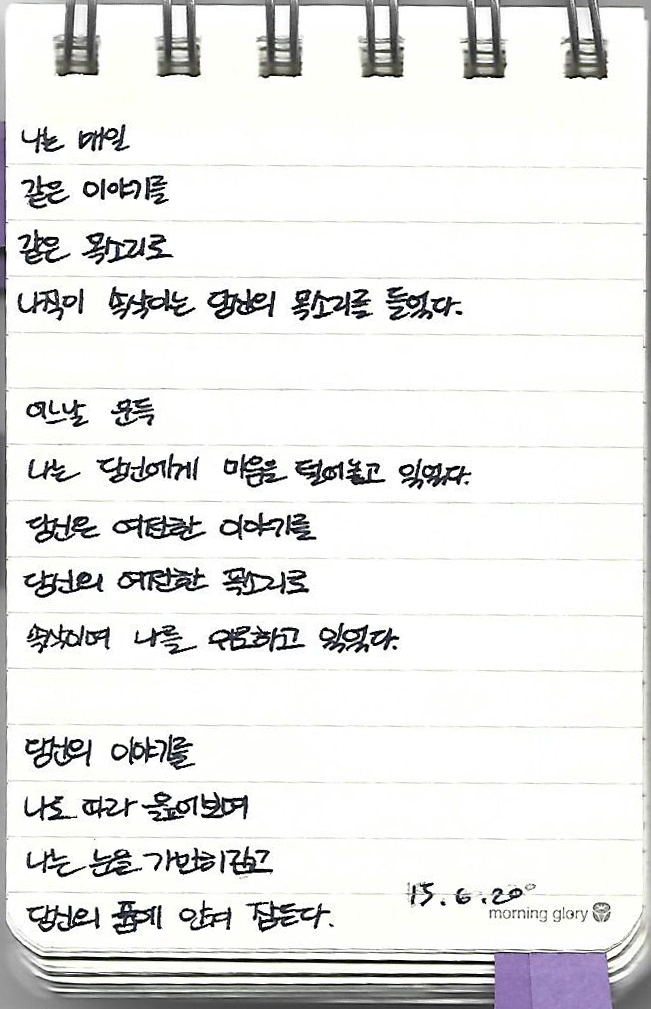 나는 매일
같은 이야기를
같은 목소리로
나직이 속삭이는 당신의 목소리를 들었다.
어느날 문득
나는 당신에게 마음을 털어놓고 있었다.
당신은 여전한 이야기를
당신의 여전한 목소리로
속삭이며 나를 위로하고 있었다.
당신의 이야기를
나도 따라 읊어보며
나는 눈을 가만히 감고
당신의 품에 안겨 잠든다.
15.6.20
morning glory